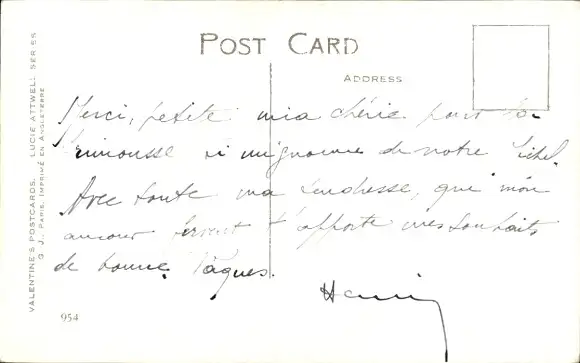 POST CARD
ADDRESS
Merci, petite mia chérie pour ta
frimousse si mignonne de notre
Avec toute ma tendresse, que mon
amour fervent t'apporte mes souhaits
de bonne Pâques.
Henri
VALENTINE'S POSTCARDS. LUCIE ATTWELL SERIES
G. J., PARIS. IMPRIMÉ EN ANGLETERRE
954